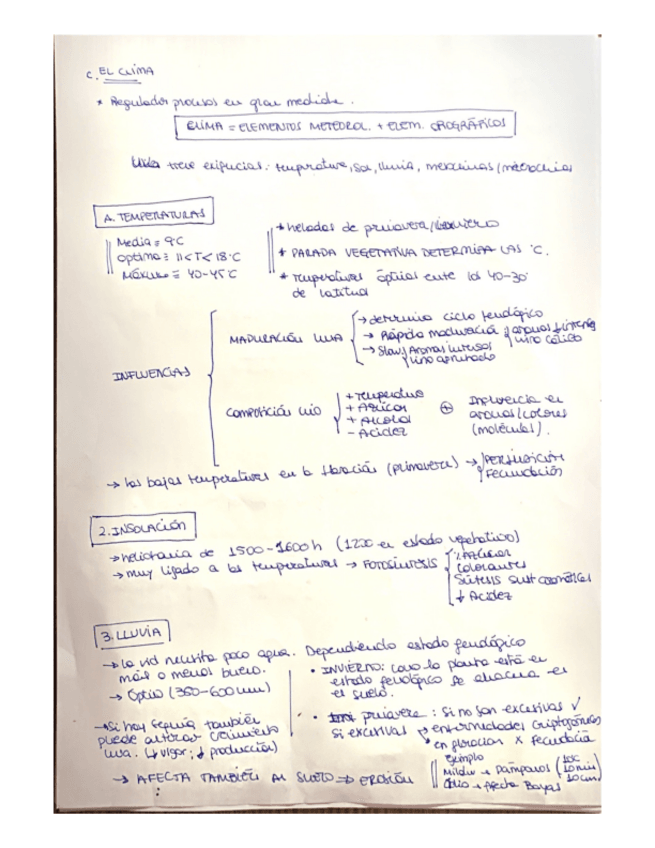 C. EL CLIMA
* Regulador procesos en gran medida.
CLIMA = ELEMENTOS METEOROL. + ELEM. OROGRÁFICOS
tiene exigencias: temperatura, sol, lluvia,
A. TEMPERATURAS
Media = 9ºC
óptima = 11<T<18ºC
Máxima = 40-45ºC
* heladas de primavera/invierno
* PARADA VEGETATIVA DETERMINA LAS ºC.
* Temperaturas óptimas entre los 40-30º
de latitud
INFLUENCIAS
MADURACIÓN UVA
→ determina ciclo fenológico
→ Rápida maduración
vino cálido
→ Slow Aromas intensos
vino afrutado
COMPOSICIÓN VINO
+ temperatura
+ Azúcar
+ Alcohol
- Acidez
⊕ Influencia en
aromas/colores
(moléculas).
→ las bajas temperaturas en la floración (primavera) → PERJUDICIAL
Fecundación
2. INSOLACIÓN
→ heliofanía de 1500-1600h (1200 en estado vegetativo)
→ muy ligado a las temperaturas → FOTOSÍNTESIS
Azúcar
Colorantes
Síntesis sust aromáticas
↓ Acidez
3. LLUVIA
→ la vid necesita poco agua. Dependiendo estado fenológico
más o menos bueno.
→ Óptio (350-600mm)
• INVIERNO: como la planta está en
estado fenológico se almacena en
el suelo.
→ Si hay sequía también
puede alterar crecimiento
uva. (↓ vigor; ↓ producción)
• primavera: Si no son excesivas ✓
si excesivas → enfermedades criptogámicas
en floración x fecundación
ejemplo
Mildiu → Pámpanos (10ºC
10mm
10cm)
Oídio → Afecta Bayas
→ AFECTA TAMBIÉN AL SUELO → EROSIÓN